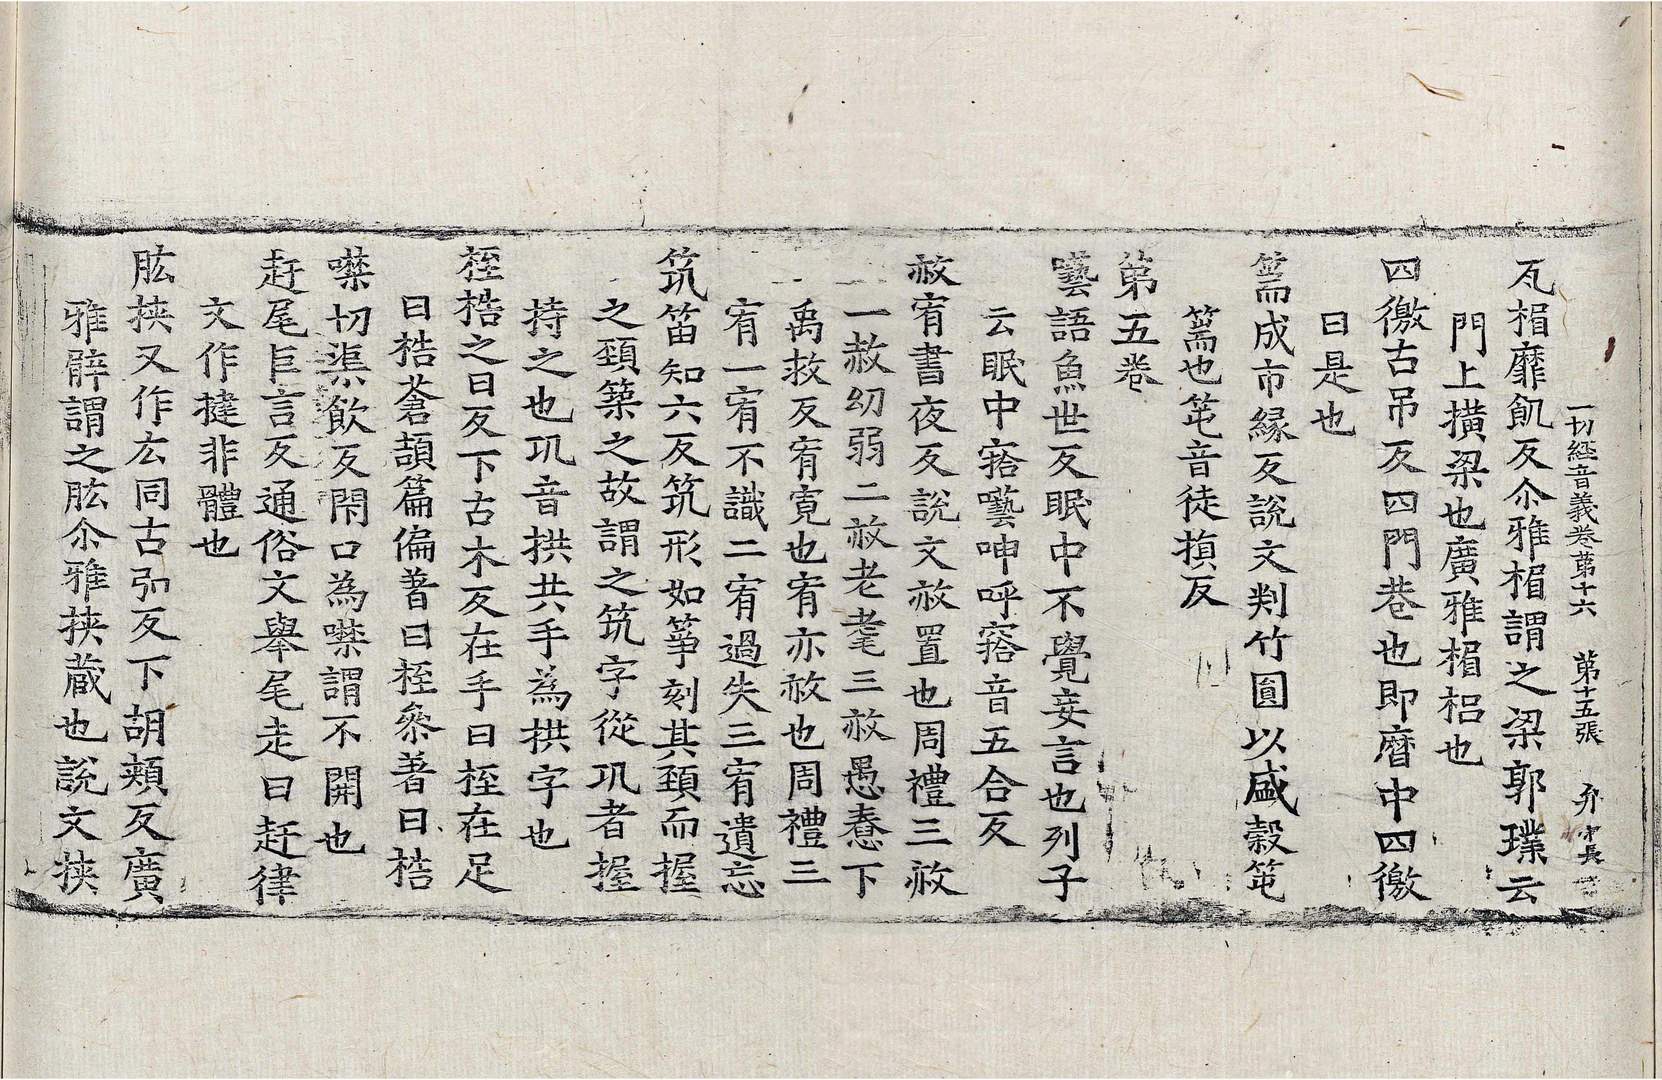 一切經音義卷苐十六　第十五張　弁
瓦楣靡飢反尒雅楣謂之梁郭璞云
門上橫梁也廣雅楣梠也
四徼古吊反四門巷也即曆中四徼
日是也
篅成市縁反說文判竹圓以盛糓笹
篅也笹音徒損反
第五卷
囈語魚世反眠中不覺妄言也列子
云眠中㝛囈呻呼㝛音五合反
赦宥書夜反說文赦置也周禮三赦
一赦幼弱二赦老耄三赦愚惷下
禹救反宥寬也宥亦赦也周禮三
宥一宥不識二宥過失三宥遺忘
筑笛知六反筑形如筝刻其頚而握
之頚築之故謂之筑字從巩者握
持之也巩音拱共手為拱字也
桎梏之日反下古木反在手曰桎在足
曰梏蒼頡篇偏著曰桎叅著曰梏
噤切渠飲反閇口為噤謂不開也
赶尾巨言反通俗文舉尾走曰赶律
文作揵非體也
肱挾又作厷同古弘反下胡頰反廣
雅臂謂之肱尒雅挾藏也說文挾